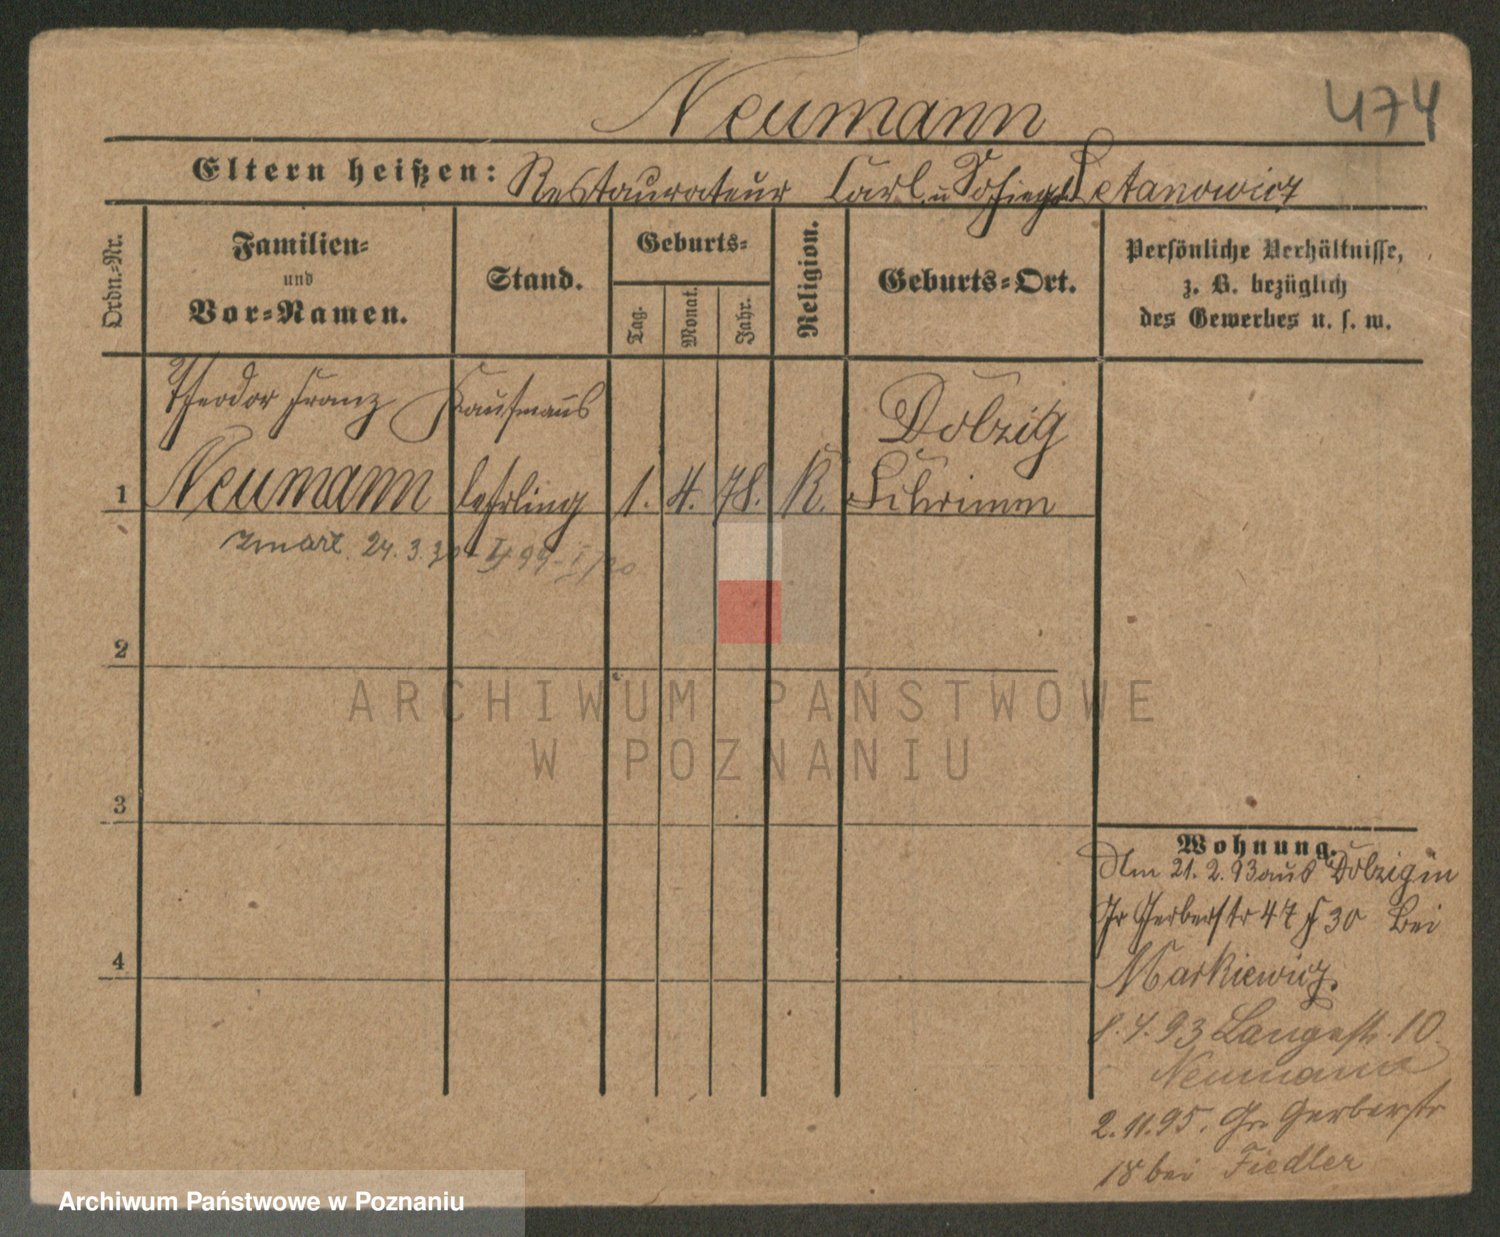 474
Neumann
Eltern heißen: Restaurateur Carl u Letanowicz
Ordn.-Nr.
Familien-
und
Vor-Namen.
Stand.
Geburts-
Tag.
Monat.
Jahr.
Religion.
Geburts-Ort.
Persönliche Verhältnisse,
z. B. bezüglich
des Gewerbes u. s. w.
Theodor Franz Kaufmanns Dolzig
1 Neumann lehrling 1. 4. 78. K. Schrimm
zmarł 24. 3.
2
ARCHIWUM PAŃSTWOWE
W POZNANIU
3
4
Wohnung.
Am 21. 2. 93 aus Dolzig in
Gr Gerberstr 47 30 bei
Markiewicz.
8. 7. 93 Langestr. 10
Neumann
2. 11. 95. Gr. Gerberstr
18 bei Fiedler
Archiwum Państwowe w Poznaniu